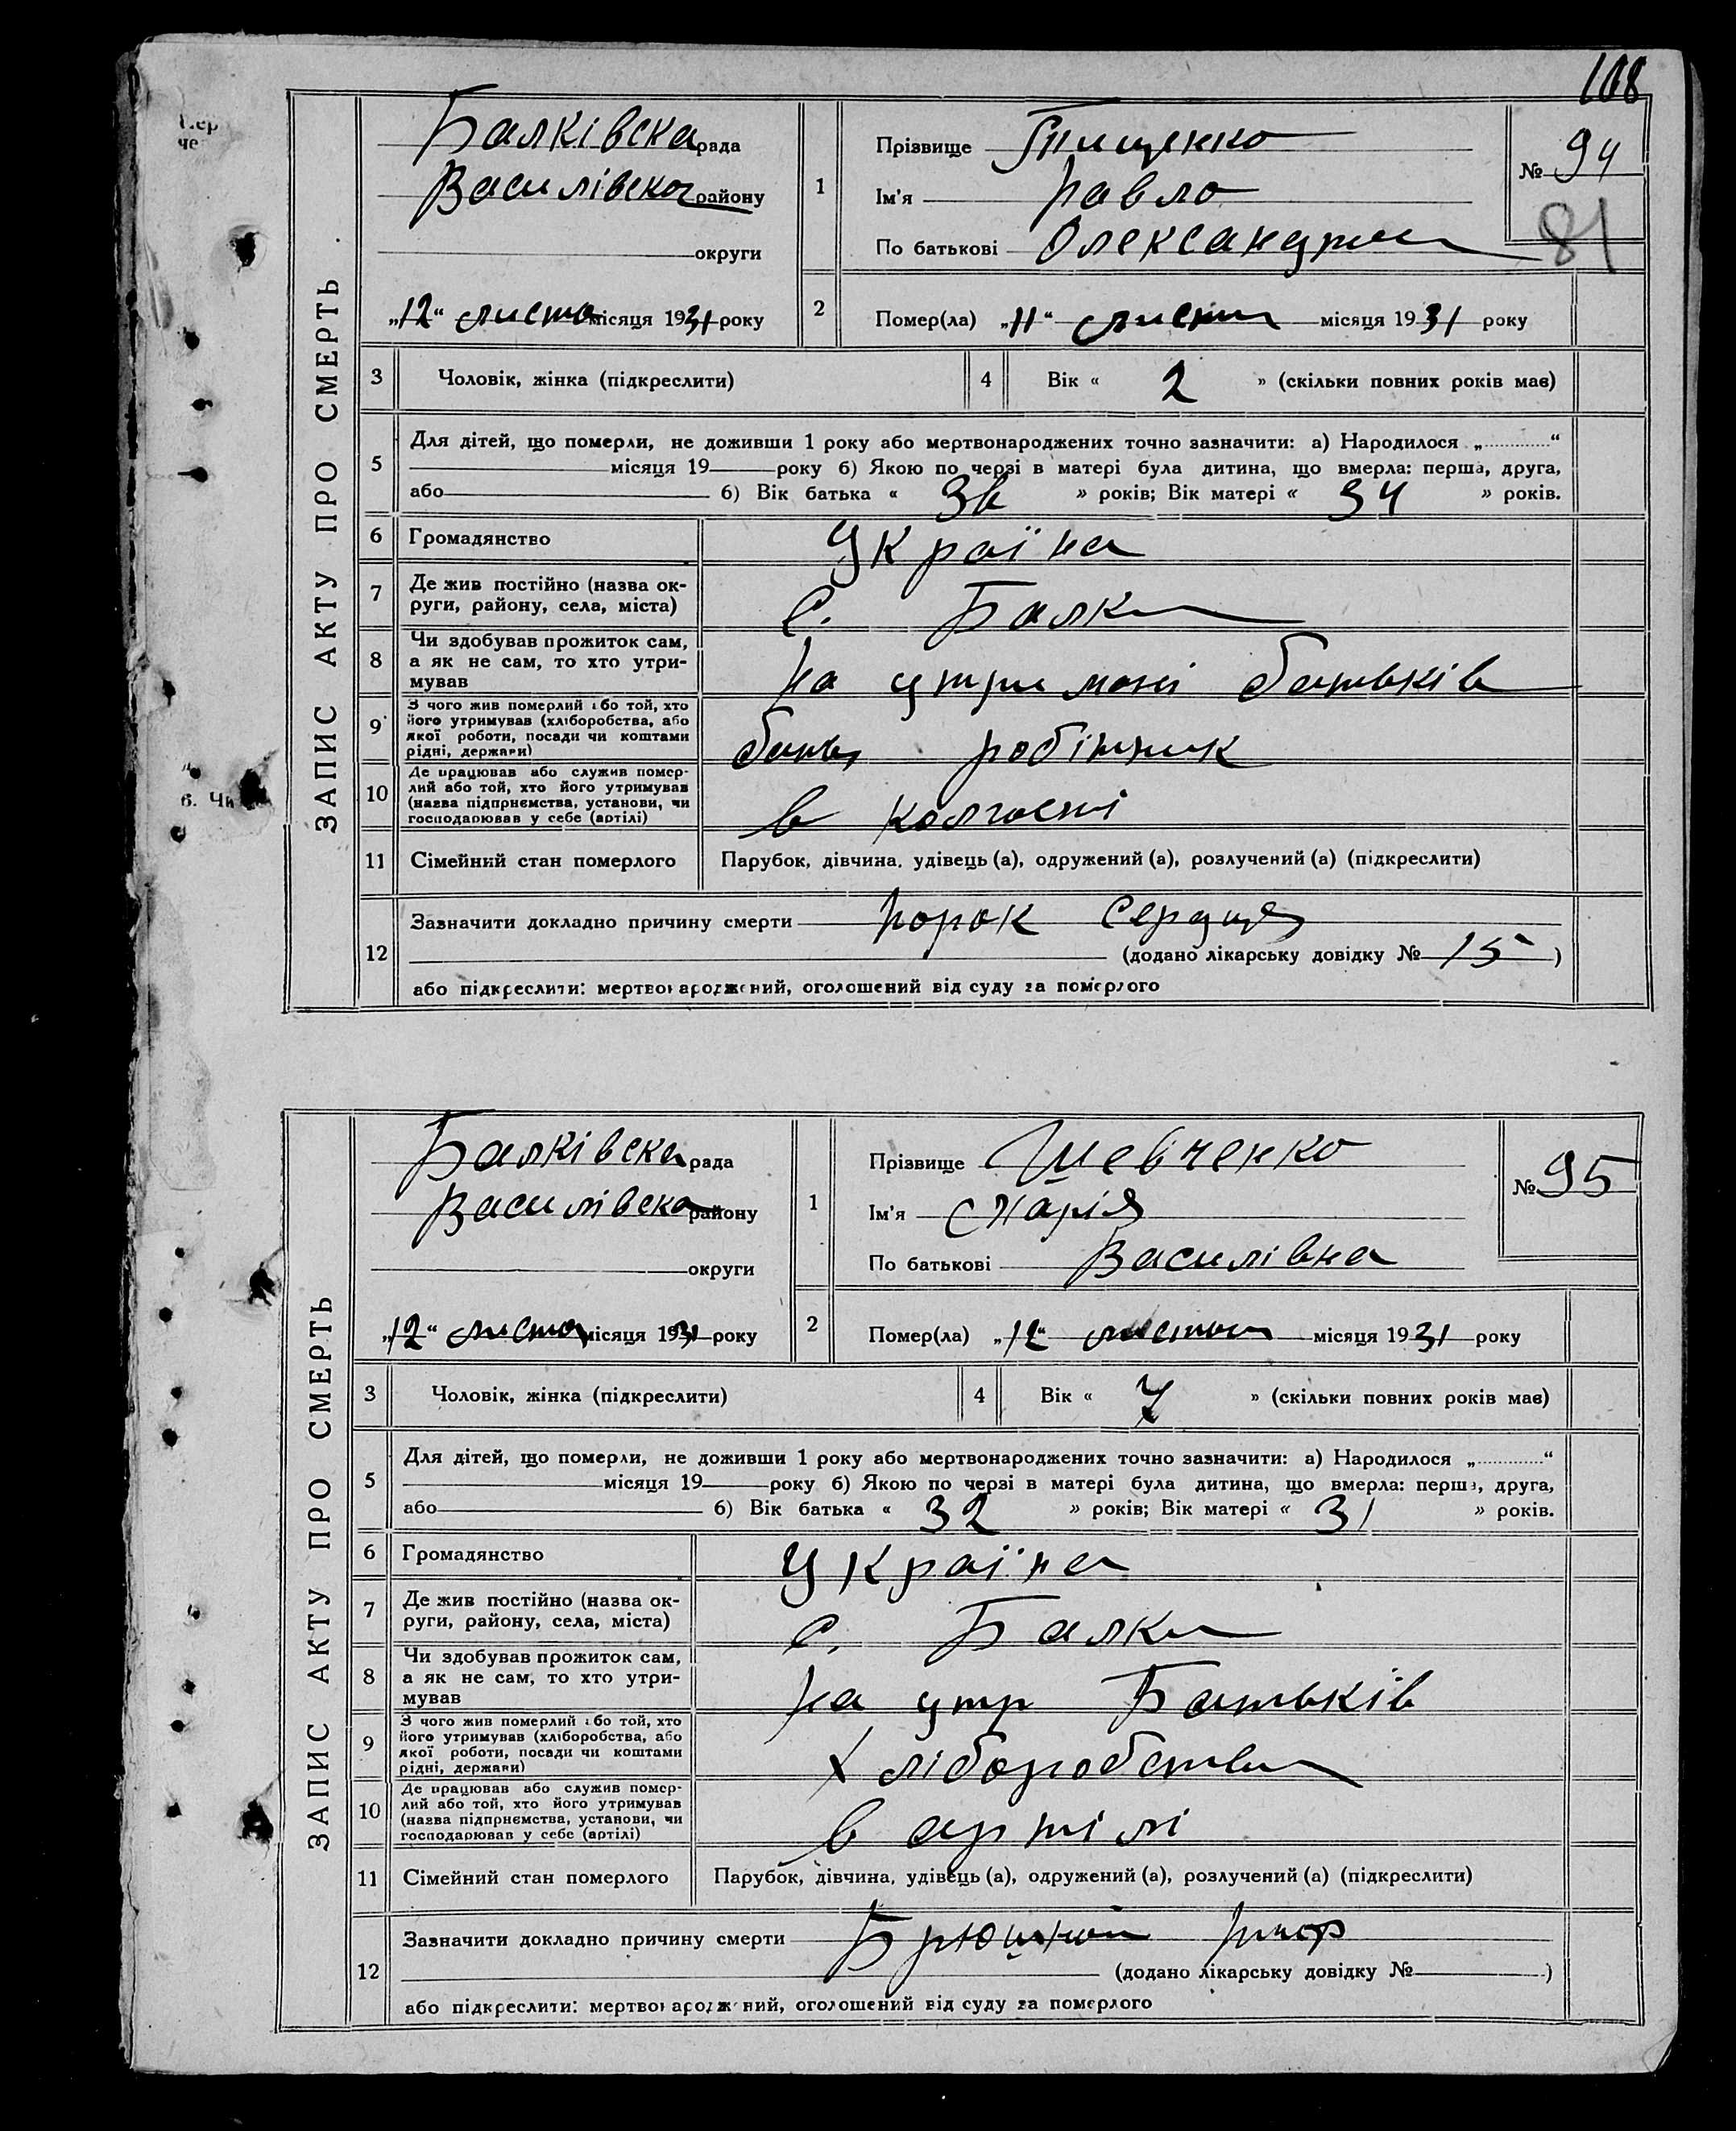 108
ЗАПИС АКТУ ПРО СМЕРТЬ
Балківска рада
Василівског району
округи
„12“ листо місяця 1931 року
1
Прізвище Тищенко
Ім'я Павло
По батькові Олександро
№ 94
81
2
Помер(ла) „11“ листоп місяця 1931 року
3 Чоловік, жінка (підкреслити)
4 Вік « 2 » (скільки повних років має)
5 Для дітей, що померли, не доживши 1 року або мертвонароджених точно зазначити: а) Народилося „ “
місяця 19 року б) Якою по черзі в матері була дитина, що вмерла: перша, друга,
або б) Вік батька « 36 » років; Вік матері « 34 » років.
6 Громадянство Україна
7 Де жив постійно (назва ок-
руги, району, села, міста) с. Балки
8 Чи здобував прожиток сам,
а як не сам, то хто утри-
мував На утримані батьків
9 З чого жив померлий або той, хто
його утримував (хліборобства, або
якої роботи, посади чи коштами
рідні, держави) робітник
10 Де працював або служив помер-
лий або той, хто його утримував
(назва підприємства, установи, чи
господарював у себе (артілі) в колгоспі
11 Сімейний стан померлого Парубок, дівчина, удівець (а), одружений (а), розлучений (а) (підкреслити)
12 Зазначити докладно причину смерти Порок Сердця
(додано лікарську довідку № 15 )
або підкреслити: мертвонароджений, оголошений від суду за померлого
ЗАПИС АКТУ ПРО СМЕРТЬ
Балківска рада
Василівско району
округи
„12“ листо місяця 1931 року
1
Прізвище Шевченко
Ім'я Марія
По батькові Василівна
№ 95
2
Помер(ла) „12“ листоп місяця 1931 року
3 Чоловік, жінка (підкреслити)
4 Вік « 7 » (скільки повних років має)
5 Для дітей, що померли, не доживши 1 року або мертвонароджених точно зазначити: а) Народилося „ “
місяця 19 року б) Якою по черзі в матері була дитина, що вмерла: перша, друга,
або б) Вік батька « 32 » років; Вік матері « 31 » років.
6 Громадянство Україна
7 Де жив постійно (назва ок-
руги, району, села, міста) с. Балки
8 Чи здобував прожиток сам,
а як не сам, то хто утри-
мував На утр Батьків
9 З чого жив померлий або той, хто
його утримував (хліборобства, або
якої роботи, посади чи коштами
рідні, держави) Хліборобство
10 Де працював або служив помер-
лий або той, хто його утримував
(назва підприємства, установи, чи
господарював у себе (артілі) в артілі
11 Сімейний стан померлого Парубок, дівчина, удівець (а), одружений (а), розлучений (а) (підкреслити)
12 Зазначити докладно причину смерти Брюшной тиф
(додано лікарську довідку № )
або підкреслити: мертвонароджений, оголошений від суду за померлого